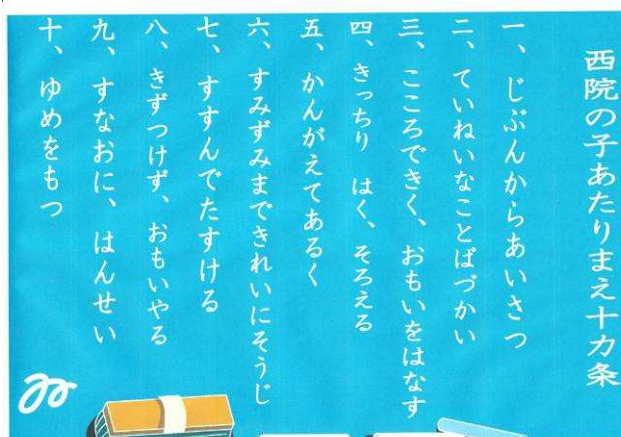 西院の子あたりまえ十カ条
一、じぶんからあいさつ
二、ていねいなことばづかい
三、こころできく、おもいをはなす
四、きっちり　はく、そろえる
五、かんがえてあるく
六、すみずみまできれいにそうじ
七、すすんでたすける
八、きずつけず、おもいやる
九、すなおに、はんせい
十、ゆめをもつ